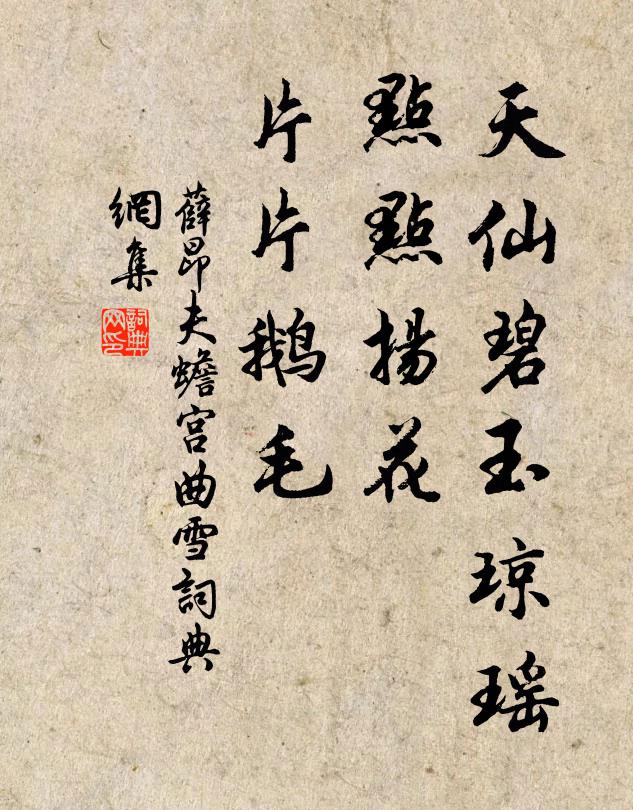 天仙碧玉琼瑶
點點揚花
片片鵝毛
薛昂夫蟾宮曲雪詞典
網集
詞典网印